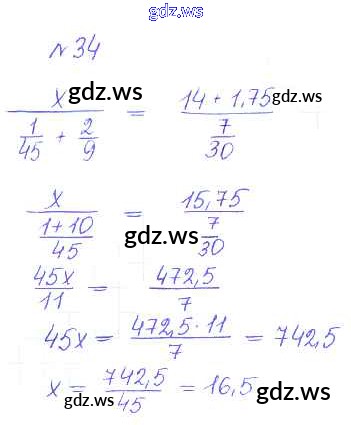 gdz.ws
№34
x / (1/45 + 2/9) = (14 + 1,75) / (7/30)
gdz.ws gdz.ws
x / ((1+10)/45) = 15,75 / (7/30)
gdz.ws gdz.ws
45x/11 = 472,5/7
45x = 472,5·11/7 = 742,5
gdz.ws
x = 742,5/45 = 16,5
gdz.ws gdz.ws